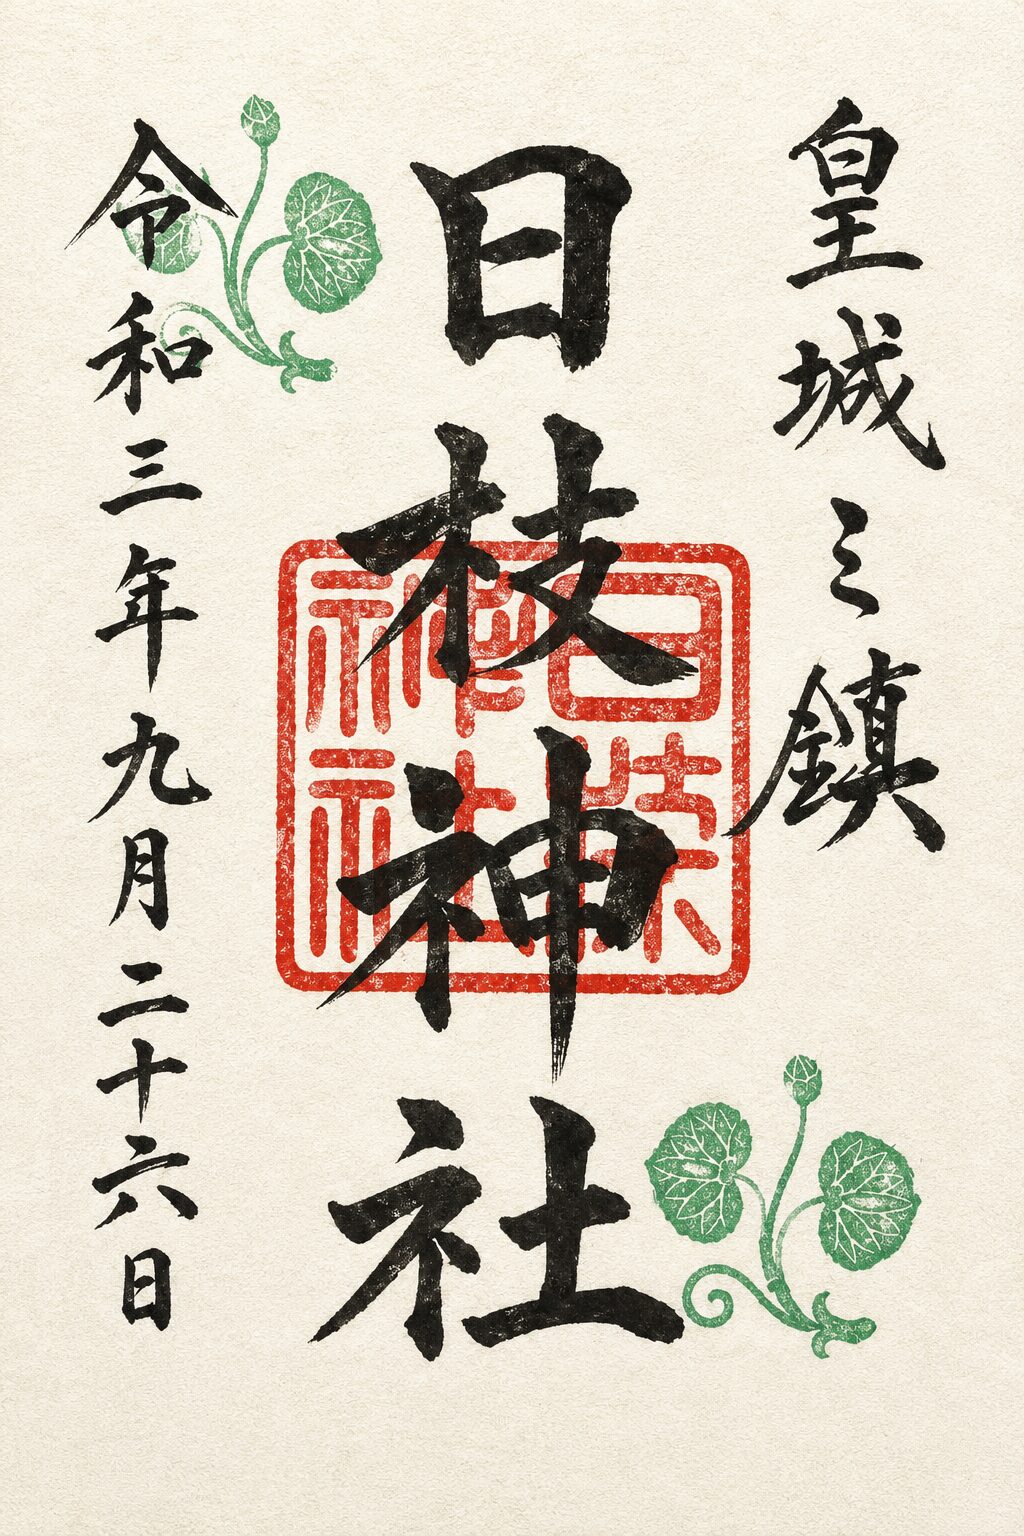 皇城之鎮
日枝神社
令和三年九月二十六日